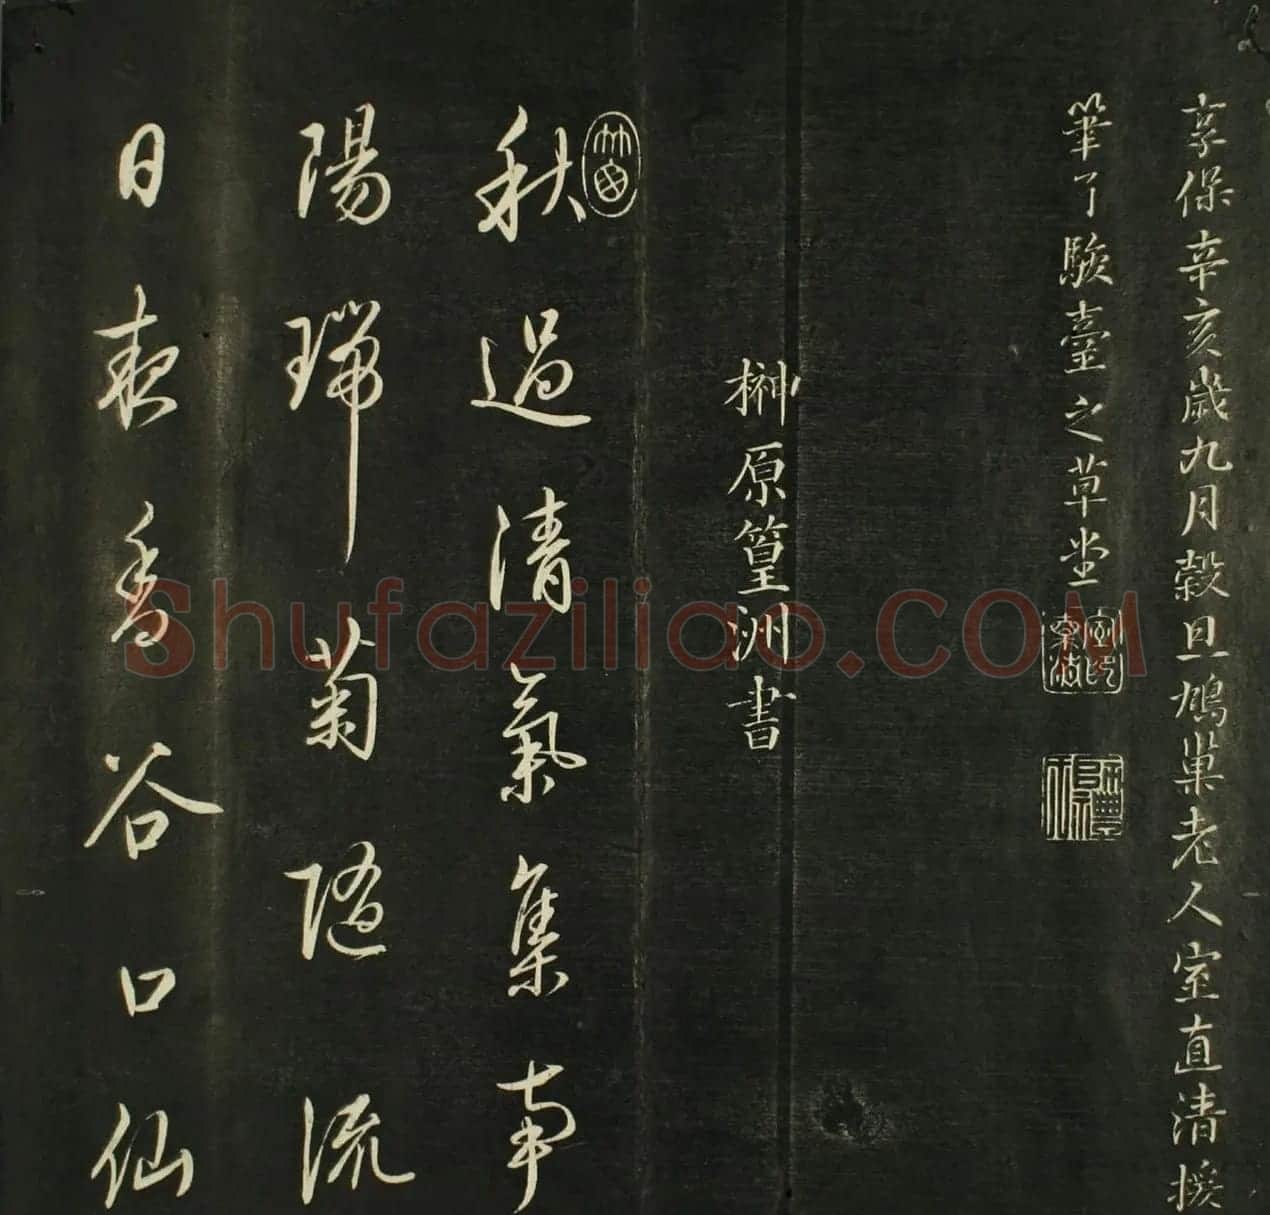 享保辛亥歲九月穀旦鳩巢老人室直清援
筆了駿臺之草堂
榊原篁洲書
秋過清氣集南
陽瑞菊隨流
日夜香谷口仙
Shufaziliao.COM